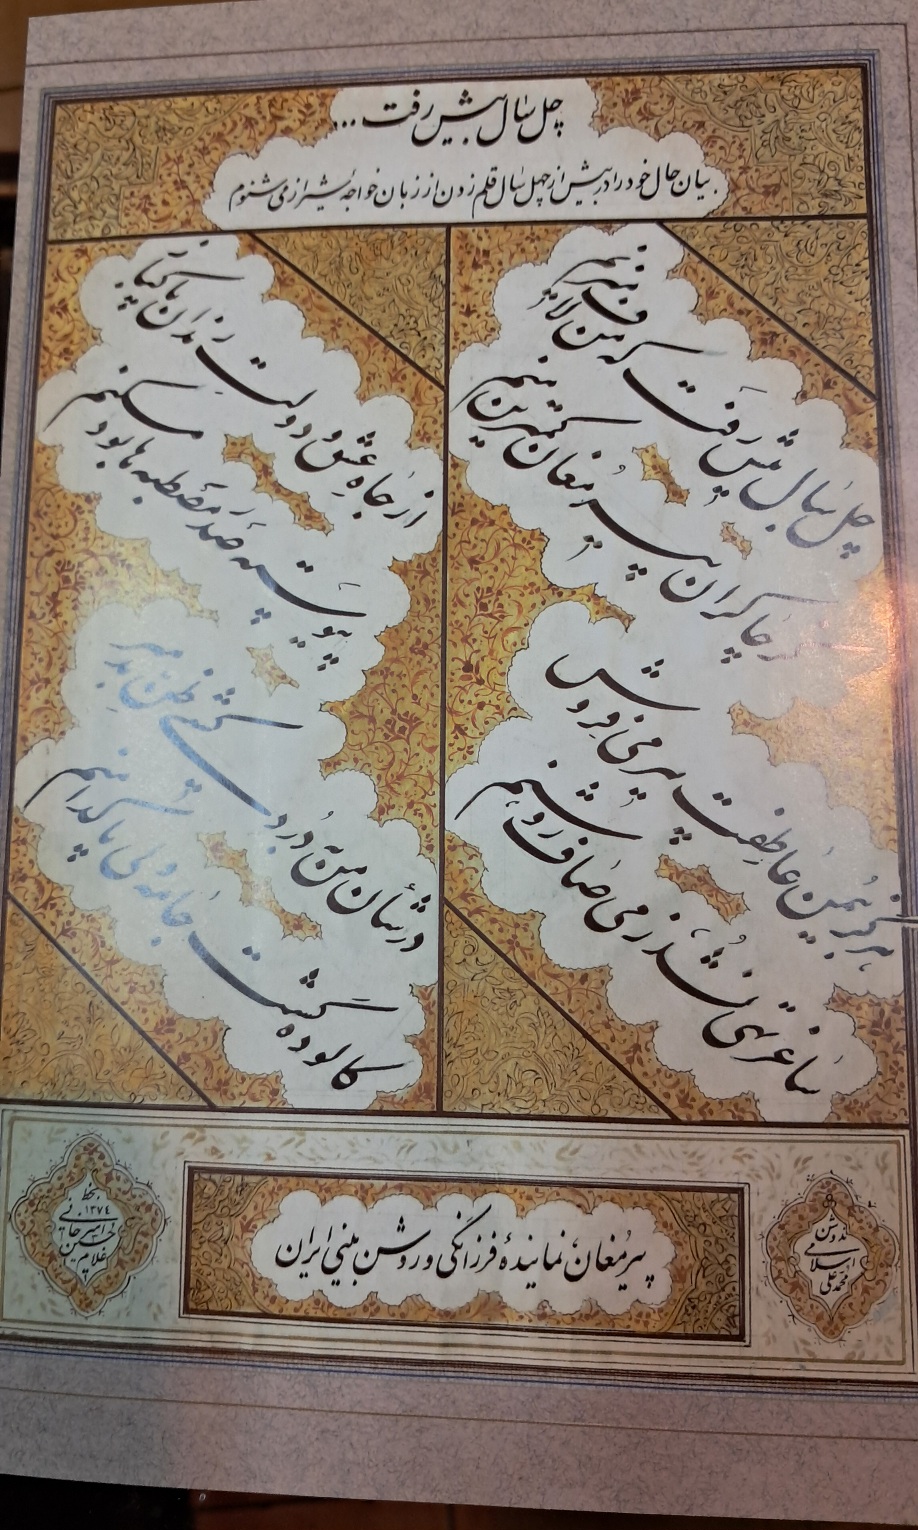 چل سال بیش رفت ...
بیان حال خود را در بیش از چهل سال قلم زدن از زبان خواجه شیراز می شنوم
چل سال بیش رفت که من لاف میزنم
کز چاکران پیر مغان کمترین منم
هرگز بیمن عاطفت پیر می فروش
ساغر تهی نشد ز می صاف روشنم
از جاه عشق و دولت رندان پاکباز
پیوسته صدر مصطبه ها بود مسکنم
در شأن من به دردکشی ظن بد مبر
کالوده گشت جامه ولی پاکدامنم
محمدعلی
اسلامی
ندوشن
پیر مغان، نمایندهٔ فرزانگی و روشن بینی ایران
خط
غلامحسین
امیرخانی
۱۳۷۴